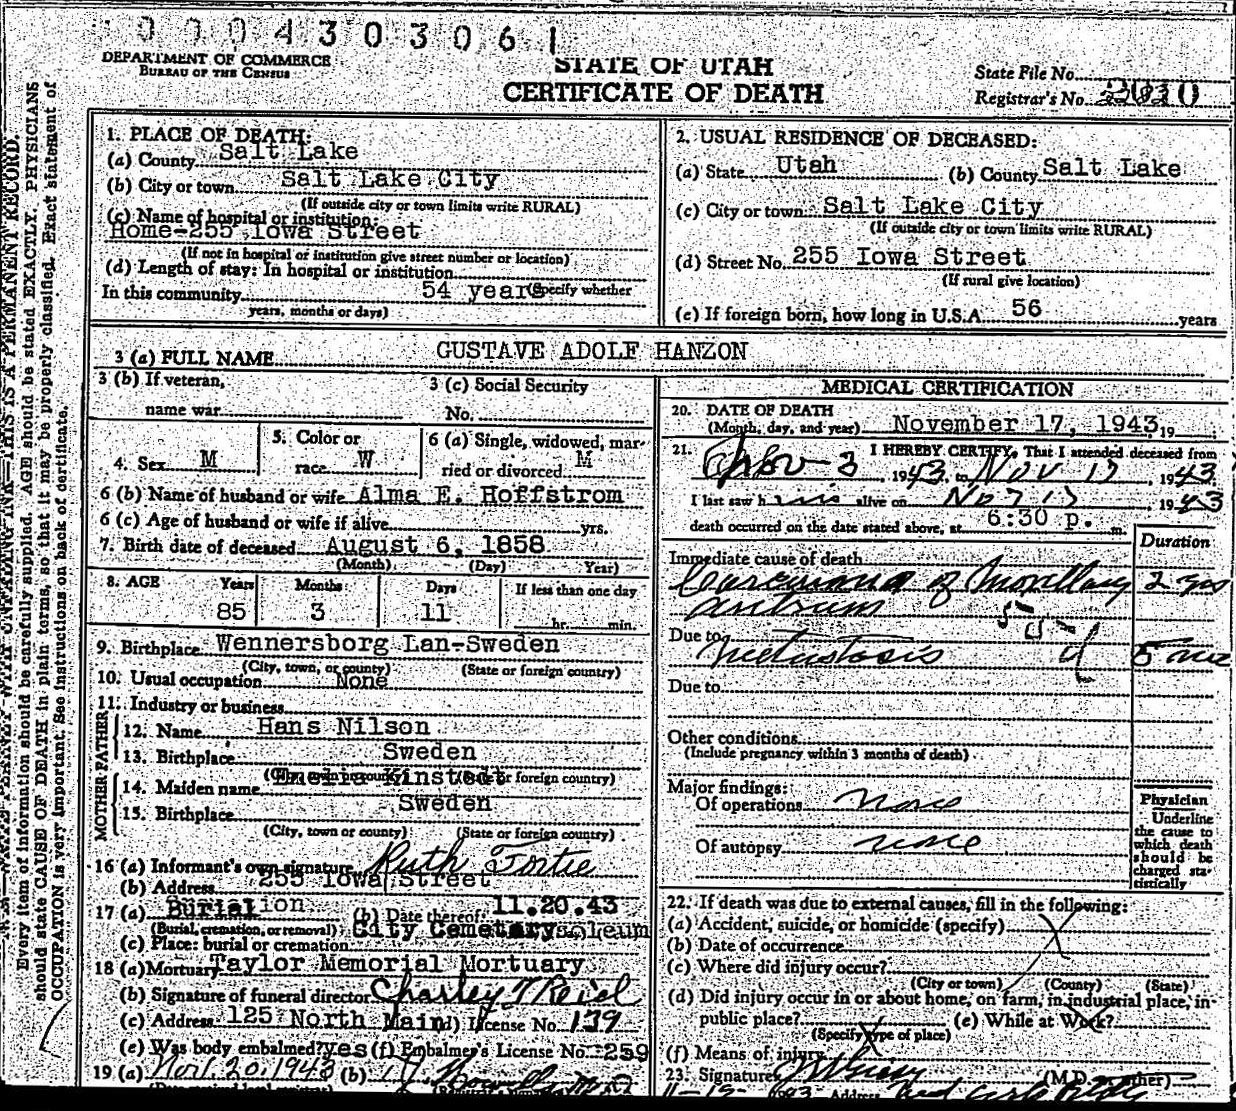 0004303061
DEPARTMENT OF COMMERCE
BUREAU OF THE CENSUS
STATE OF UTAH
CERTIFICATE OF DEATH
State File No.
Registrar's No. 2010
Every item of information should be carefully supplied. AGE should be stated EXACTLY. PHYSICIANS
should state CAUSE OF DEATH in plain terms, so that it may be properly classified. Exact statement of
OCCUPATION is very important. See instructions on back of certificate.
1. PLACE OF DEATH:
(a) County Salt Lake
(b) City or town Salt Lake City
(If outside city or town limits write RURAL)
(c) Name of hospital or institution:
Home-255 Iowa Street
(If not in hospital or institution give street number or location)
(d) Length of stay: In hospital or institution
In this community 54 years (Specify whether
years, months or days)
2. USUAL RESIDENCE OF DECEASED:
(a) State Utah (b) County Salt Lake
(c) City or town Salt Lake City
(If outside city or town limits write RURAL)
(d) Street No. 255 Iowa Street
(If rural give location)
(e) If foreign born, how long in U.S.A. 56 years
3 (a) FULL NAME GUSTAVE ADOLF HANZON
3 (b) If veteran,
name war
3 (c) Social Security
No.
4. Sex M
5. Color or
race W
6 (a) Single, widowed, mar-
ried or divorced M
6 (b) Name of husband or wife Alma E. Hoffstrom
6 (c) Age of husband or wife if alive yrs.
7. Birth date of deceased August 6, 1858
(Month) (Day) Year)
8. AGE Years Months Days If less than one day
85 3 11 hr. min.
9. Birthplace Wennersborg Lan-Sweden
(City, town, or county) (State or foreign country)
10. Usual occupation None
11. Industry or business
FATHER
12. Name Hans Nilson
13. Birthplace Sweden
MOTHER
14. Maiden name Kinstedt
15. Birthplace Sweden
(City, town or county) (State or foreign country)
16 (a) Informant's own signature Ruth Tortie
(b) Address 255 Iowa Street
17 (a) Burial (b) Date thereof 11.20.43
(Burial, cremation, or removal)
(c) Place: burial or cremation City Cemetary
18 (a) Mortuary Taylor Memorial Mortuary
(b) Signature of funeral director Charley
(c) Address 125 North Main (d) License No. 139
(e) Was body embalmed? yes (f) Embalmer's License No. 259
19 (a) Nov. 20, 1943 (b)
MEDICAL CERTIFICATION
20. DATE OF DEATH
(Month, day, and year) November 17, 1943, 19
21. I HEREBY CERTIFY, That I attended deceased from
1943, to Nov 17, 1943.
I last saw him alive on Nov 17, 1943
death occurred on the date stated above, at 6:30 p. m.
Duration
Immediate cause of death
Carcinoma of Maxillary 2 yrs
antrum
Due to
Metastasis 5 mo
Due to
Other conditions
(Include pregnancy within 3 months of death)
Major findings:
Of operations none
Of autopsy none
Physician
Underline
the cause to
which death
should be
charged sta-
tistically
22. If death was due to external causes, fill in the following:
(a) Accident, suicide, or homicide (specify)
(b) Date of occurrence
(c) Where did injury occur?
(City or town) (County) (State)
(d) Did injury occur in or about home, on farm, in industrial place, in
public place? (e) While at Work?
(Specify type of place)
(f) Means of injury
23. Signature (M.D. or other)
Address